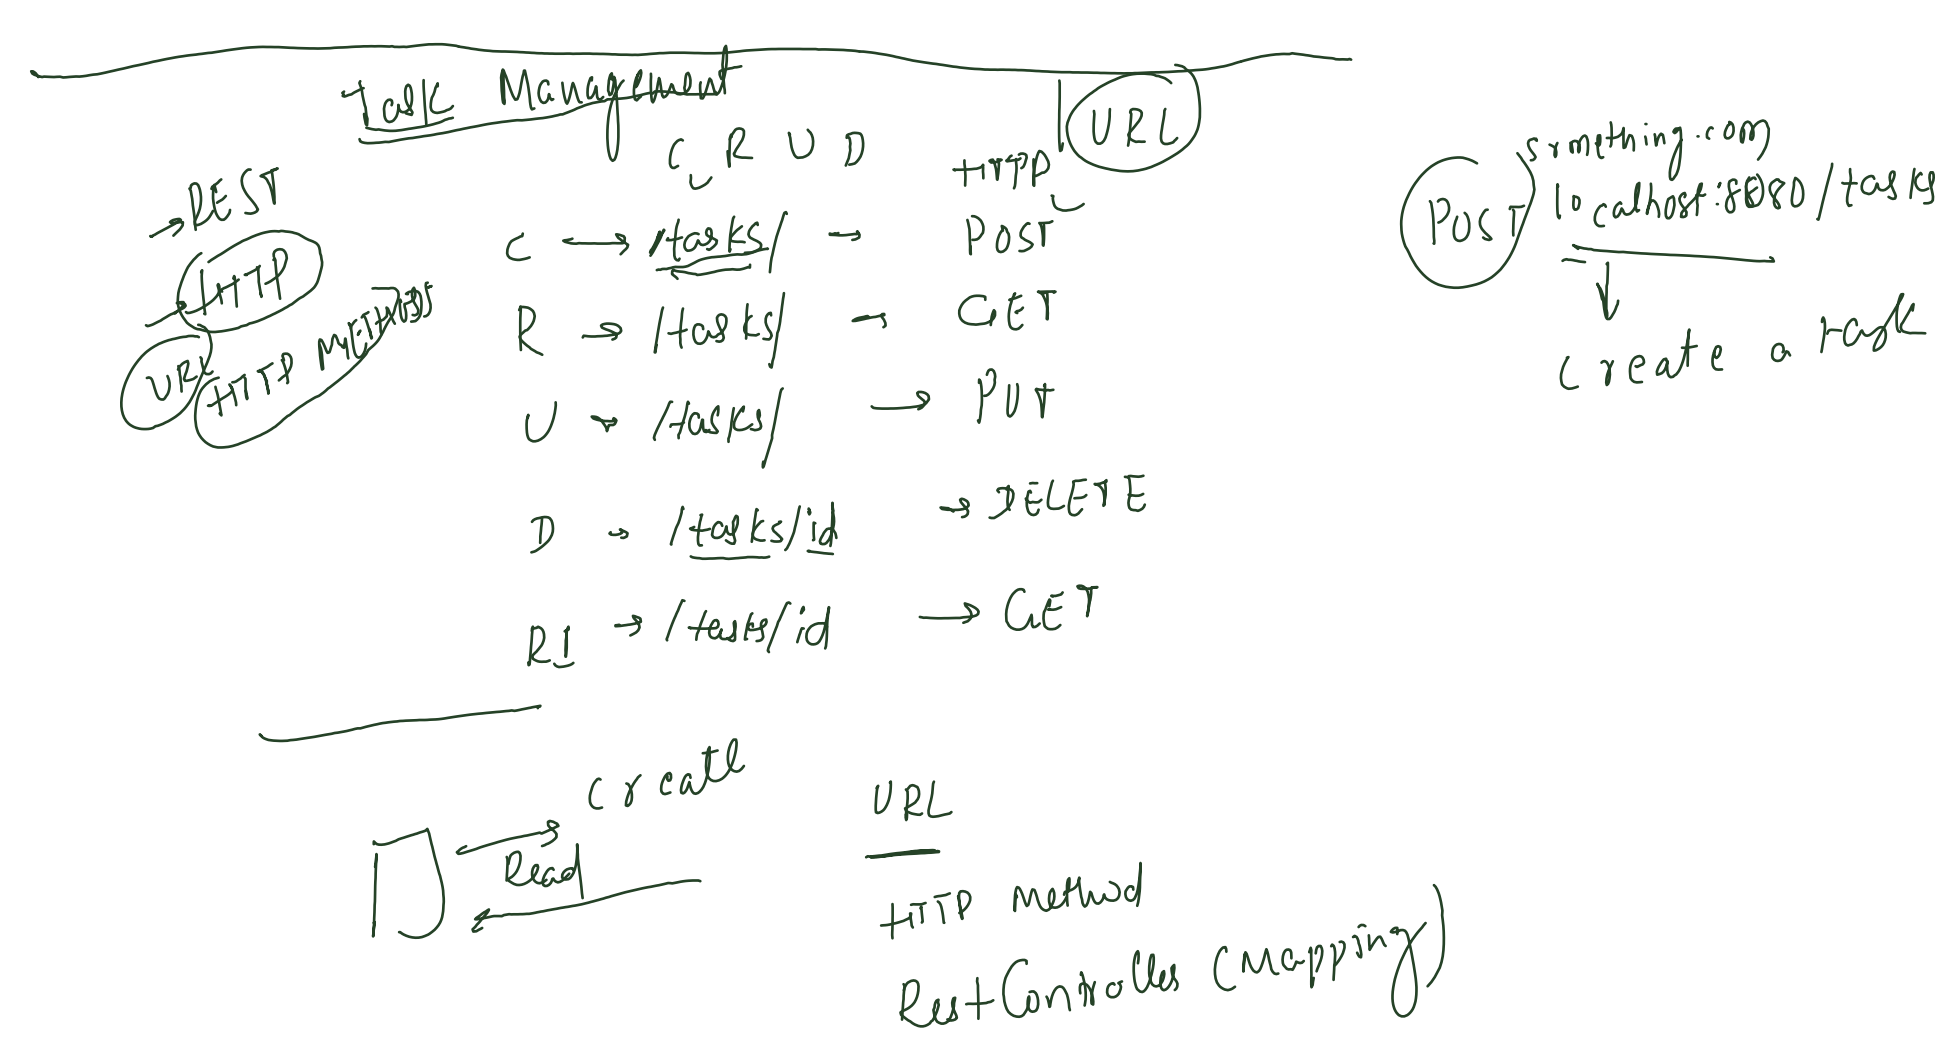 Task Management
URL
C R U D
HTTP
→ REST
→ HTTP
URL
HTTP METHODS
C ↔ /tasks/ → POST
R → /tasks/ → GET
U → /tasks/ → PUT
D → /tasks/id → DELETE
R1 → /tasks/id → GET
something.com
POST localhost:8080/tasks
↓
Create a task
Create
Read
URL
HTTP Method
RestController (Mapping)